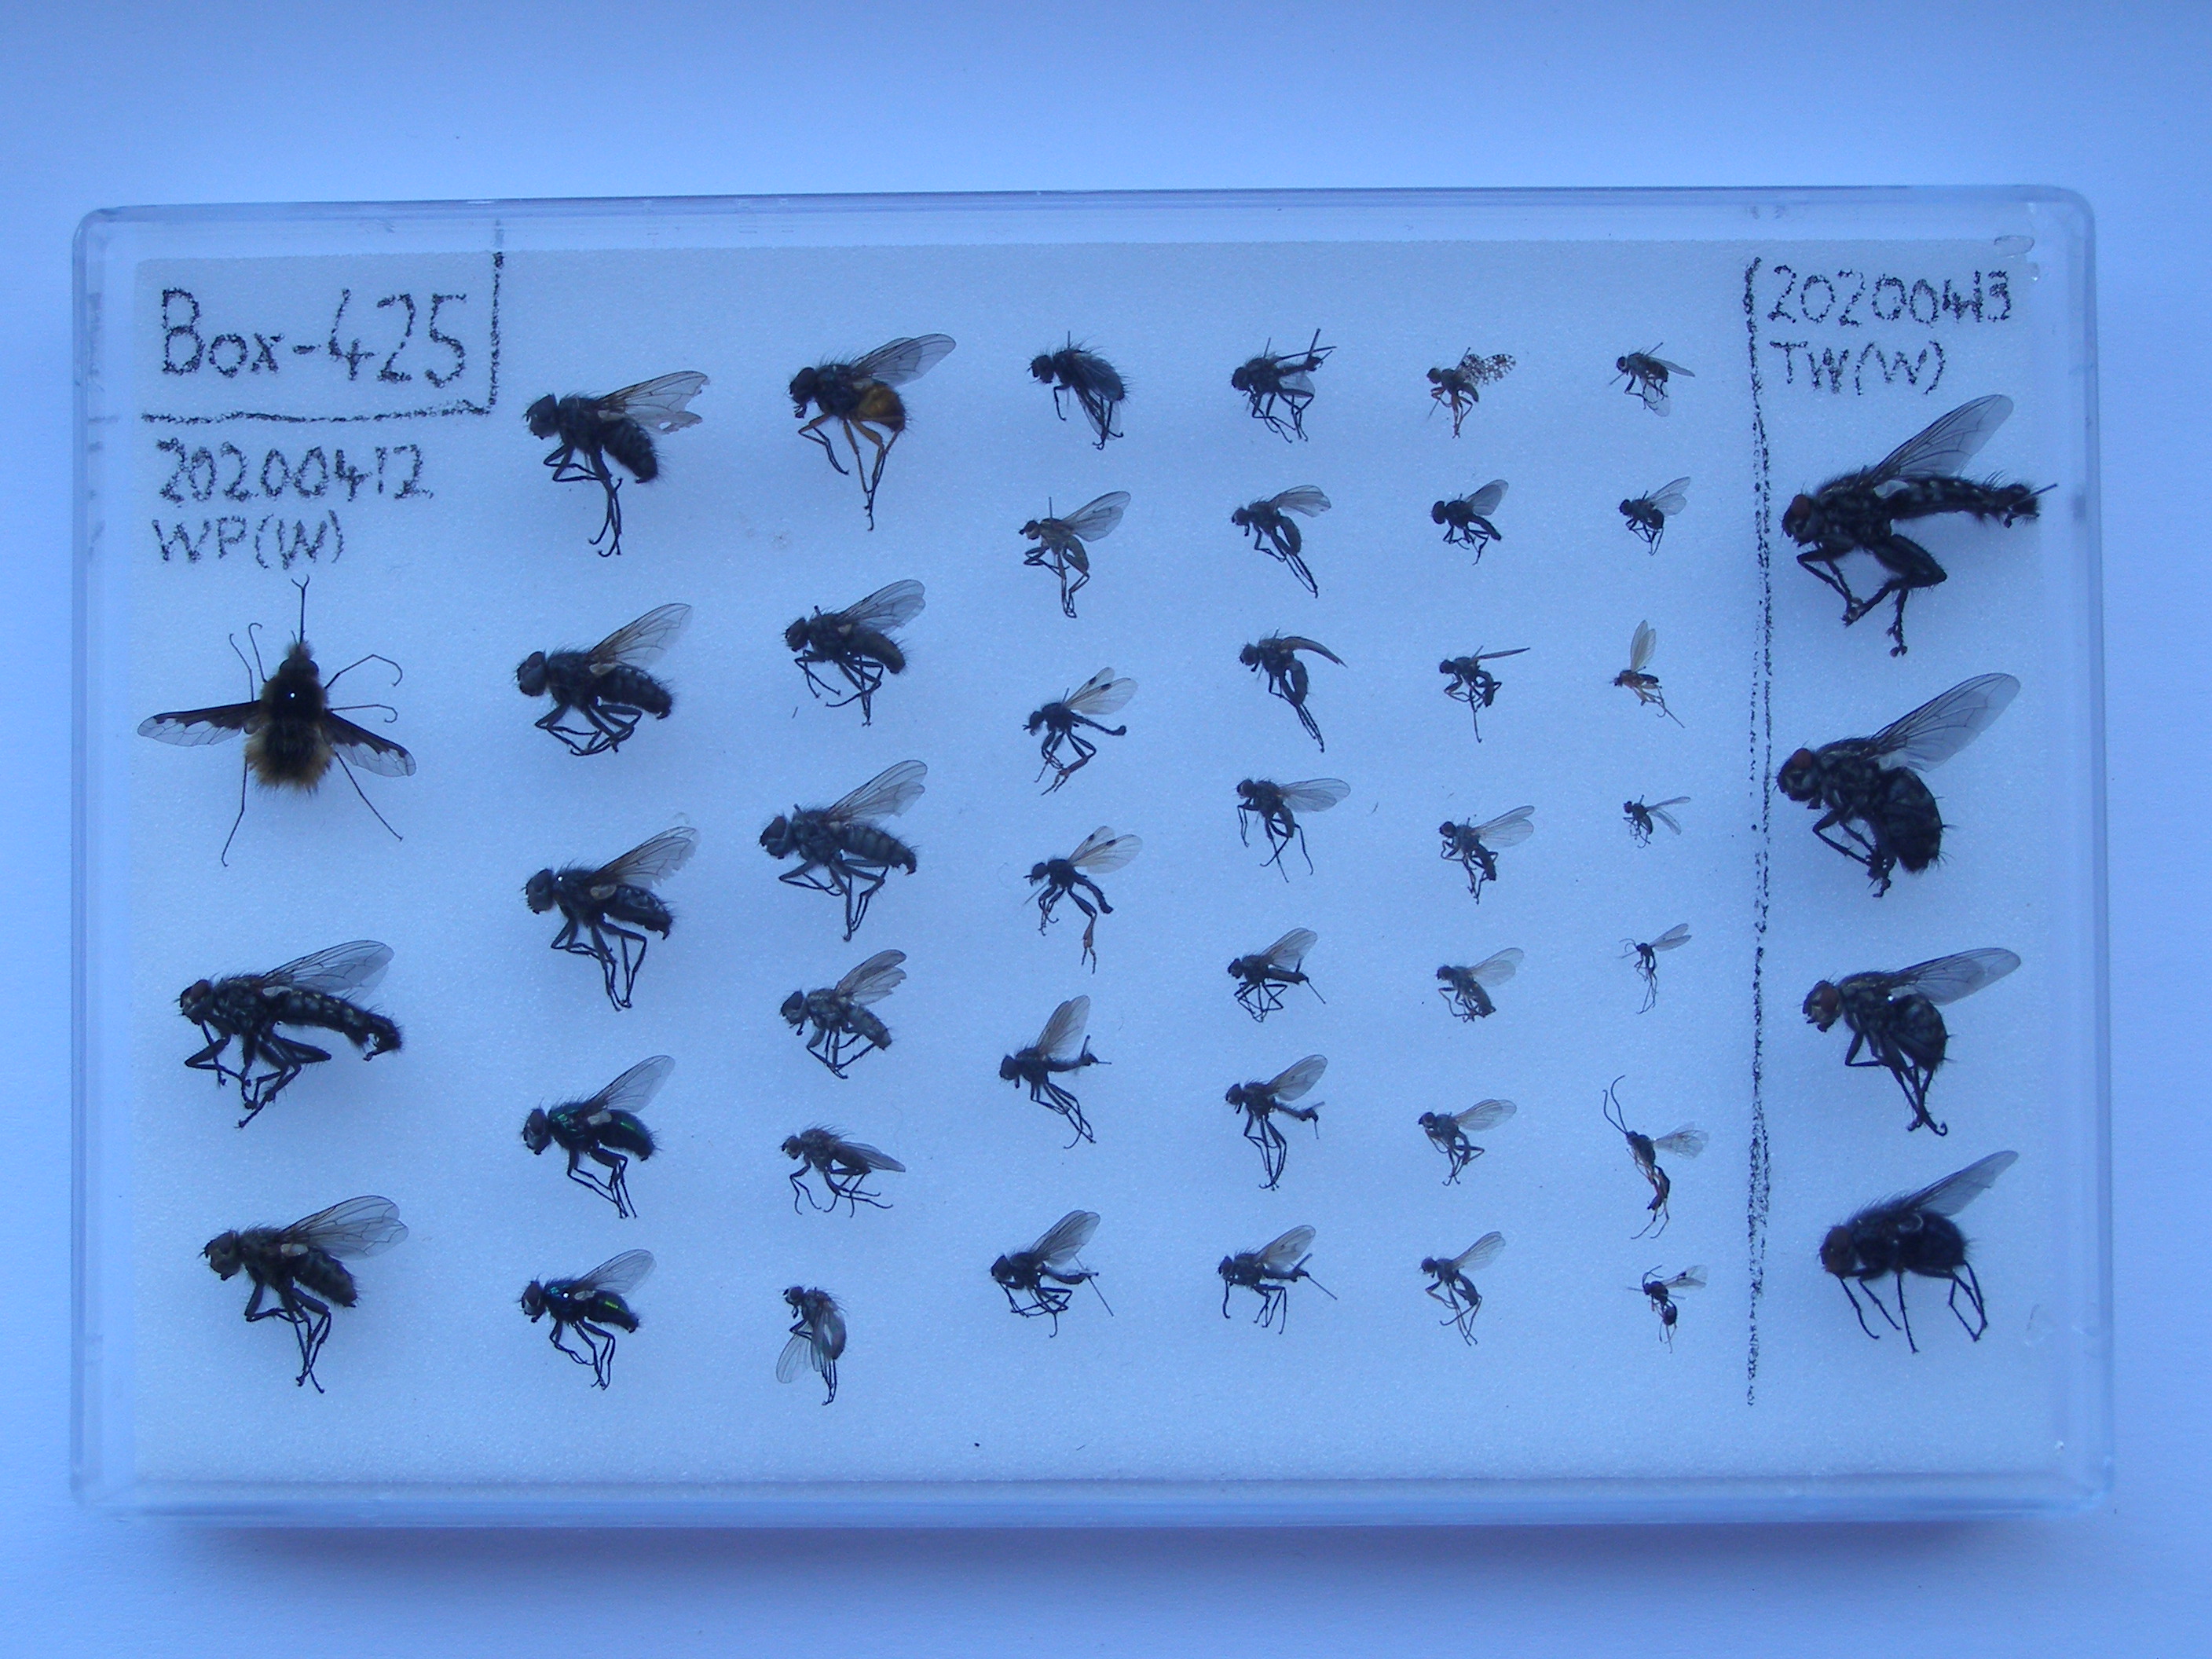 Box-425
20200412
WP(W)
20200413
TW(W)